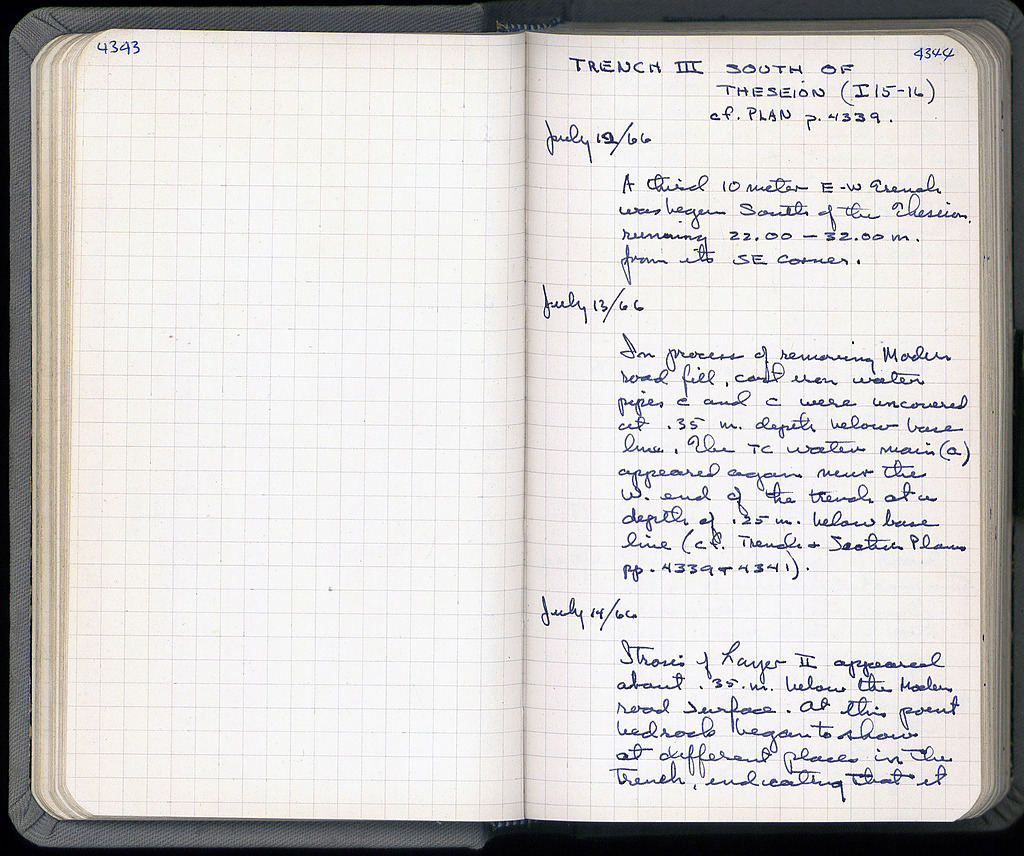 4343
4344
TRENCH III SOUTH OF
THESEION (I 15-16)
cf. PLAN p. 4339.
July 12/66
A third 10 meter E-W Trench
was begun South of the Theseion,
running 22.00 – 32.00 m.
from its SE corner.
July 13/66
In process of removing Modern
road fill, cast iron water
pipes c and c were uncovered
at .35 m. depth below base
line. The TC water main (a)
appeared again near the
W. end of the trench at a
depth of .25 m. below base
line (cf. Trench + Section Plans
pp. 4339 + 4341).
July 14/66
Strosis of Layer II appeared
about .35 m. below the Modern
road surface. At this point
bedrock began to show
at different places in the
Trench, indicating that it